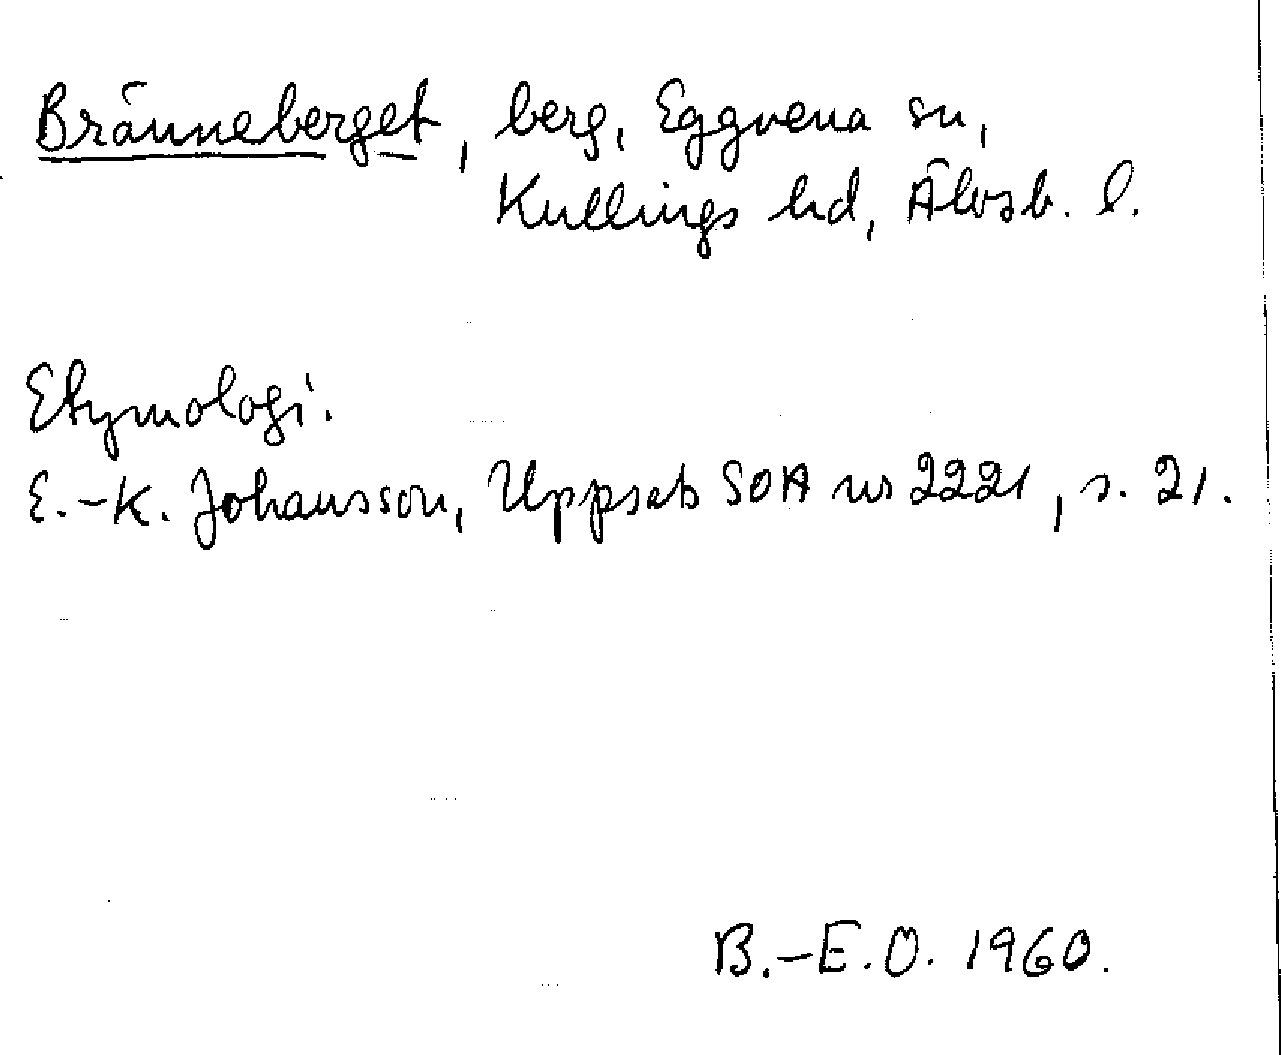 Bränneberget, berg, Eggvena sn,
Kullings hd, Älvsb. l.
Etymologi.
E.-K. Johansson, Uppsats SOA nr 2221, s. 21.
B.-E.O. 1960.